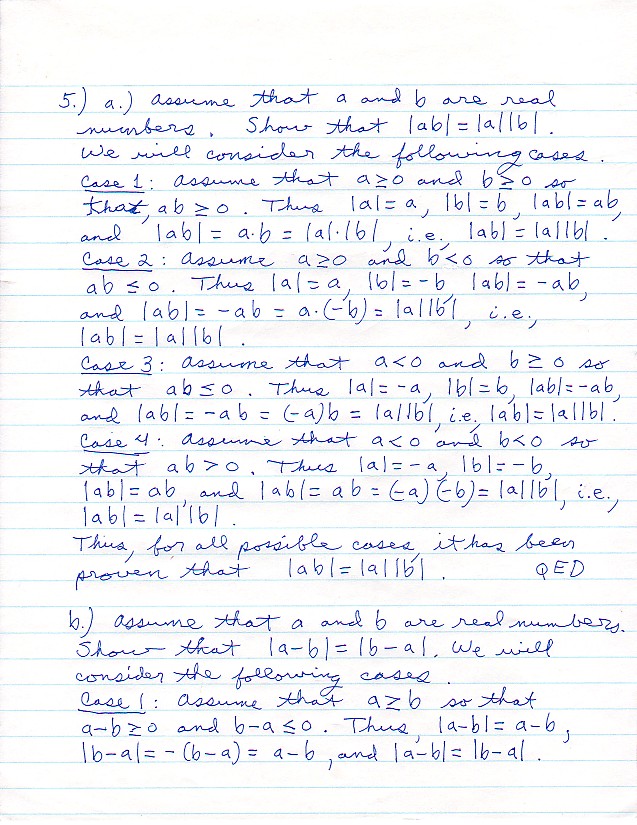 5.) a.) Assume that a and b are real
numbers. Show that |ab| = |a||b|.
We will consider the following cases.
Case 1: Assume that a ≥ 0 and b ≥ 0 so
that, ab ≥ 0. Thus |a| = a, |b| = b, |ab| = ab,
and |ab| = a·b = |a|·|b|, i.e., |ab| = |a||b|.
Case 2: Assume a ≥ 0 and b < 0 so that
ab ≤ 0. Thus |a| = a, |b| = -b, |ab| = -ab,
and |ab| = -ab = a·(-b) = |a||b|, i.e.,
|ab| = |a||b|.
Case 3: Assume that a < 0 and b ≥ 0 so
that ab ≤ 0. Thus |a| = -a, |b| = b, |ab| = -ab,
and |ab| = -ab = (-a)b = |a||b|, i.e., |ab| = |a||b|.
Case 4: Assume that a < 0 and b < 0 so
that ab > 0. Thus |a| = -a, |b| = -b,
|ab| = ab, and |ab| = ab = (-a)(-b) = |a||b|, i.e.,
|ab| = |a||b|.
Thus, for all possible cases, it has been
proven that |ab| = |a||b|. QED
b.) Assume that a and b are real numbers.
Show that |a-b| = |b-a|. We will
consider the following cases.
Case 1: Assume that a ≥ b so that
a-b ≥ 0 and b-a ≤ 0. Thus, |a-b| = a-b,
|b-a| = -(b-a) = a-b, and |a-b| = |b-a|.